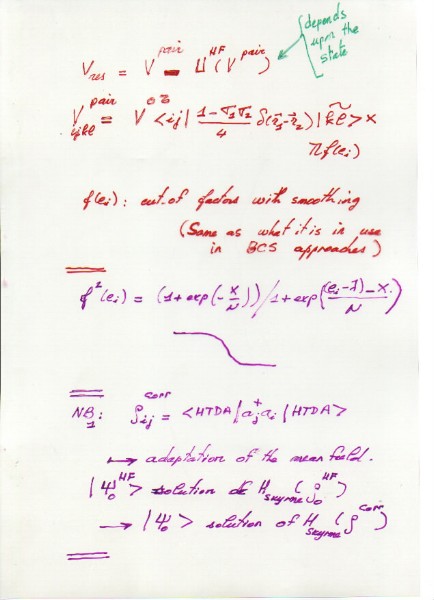 depends
upon the
state
V_res = V^pair - U^HF (V^pair)
V^pair_ijkl = V^oσ <ij| (1-σ₁σ₂)/4 δ(r⃗₁-r⃗₂) | k̃l̃ > ×
πf(e_i)
f(e_i): cut-of factors with smoothing
(Same as what it is in use
in BCS approaches)
f²(e_i) = (1+exp(-X/N)) / 1+exp((e_i-λ)-X / N)
NB1: ρ^corr_ij = <HTDA| a⁺_j a_i |HTDA>
↦ adaptation of the mean field.
|Ψ₀^HF> solution of H_Skyrme (ρ₀^HF)
→ |Ψ₀> solution of H_Skyrme (ρ^corr)